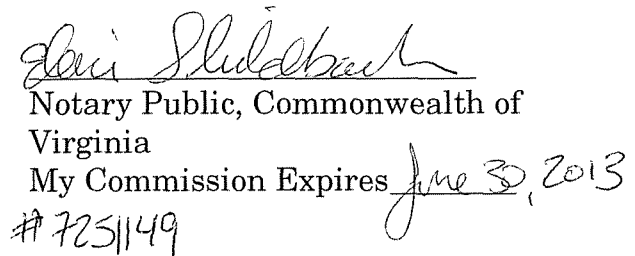 Notary Public, Commonwealth of
Virginia
My Commission Expires June 30, 2013
#7251149